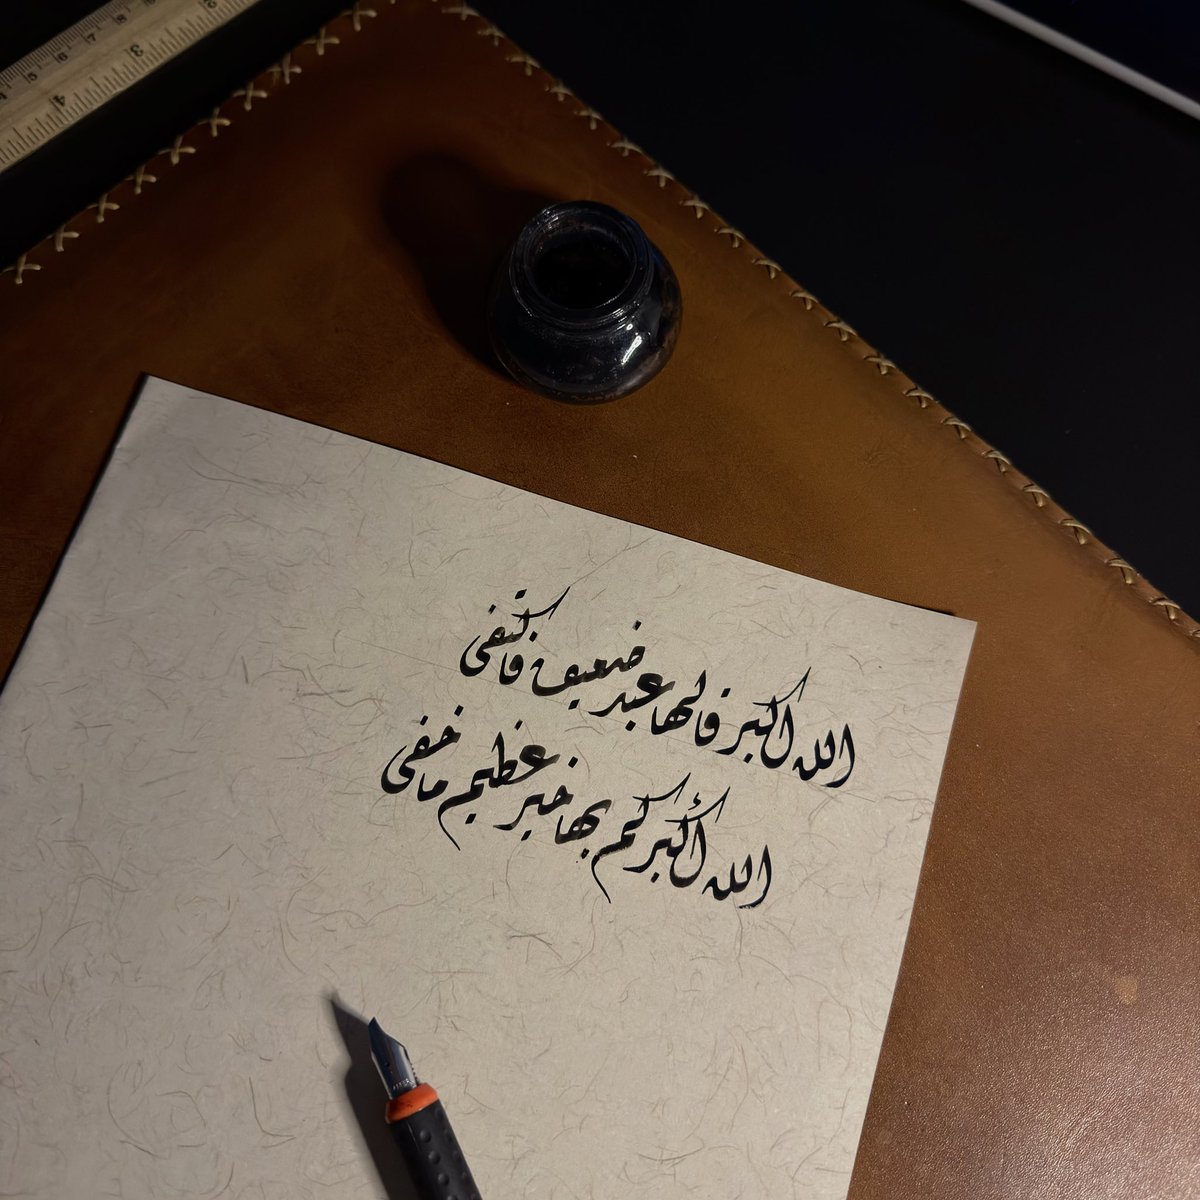 الله اكبر قالها عبد ضعيف فاكتفى
الله أكبر كم بها خير عظيم ما خفي